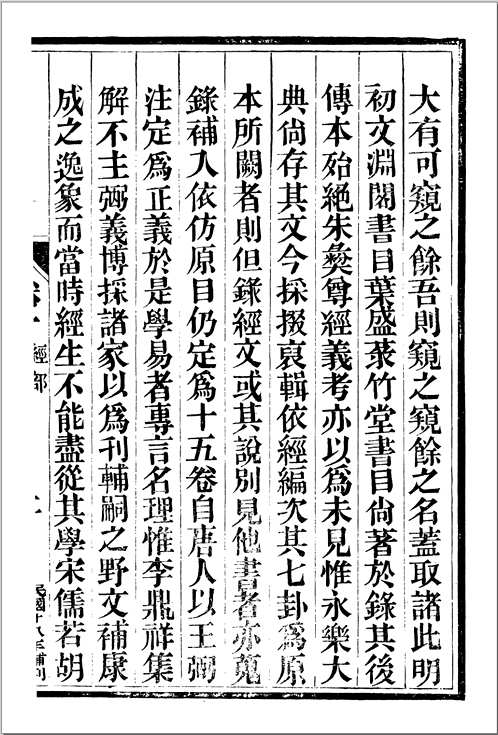 大有可窺之餘吾則窺之窺餘之名蓋取諸此明
初文淵閣書目葉盛菉竹堂書目尙著於錄其後
傳本殆絶朱彜尊經義考亦以爲未見惟永樂大
典尙存其文今採掇裒輯依經編次其七卦爲原
本所闕者則但錄經文或其說別見他書者亦蒐
錄補入依仿原目仍定爲十五卷自唐人以王弼
注定爲正義於是學易者專言名理惟李鼎祥集
解不主弼義博採諸家以爲刋輔嗣之野文補康
成之逸象而當時經生不能盡從其學宋儒若胡
卷十 經部 民國十八年補刊